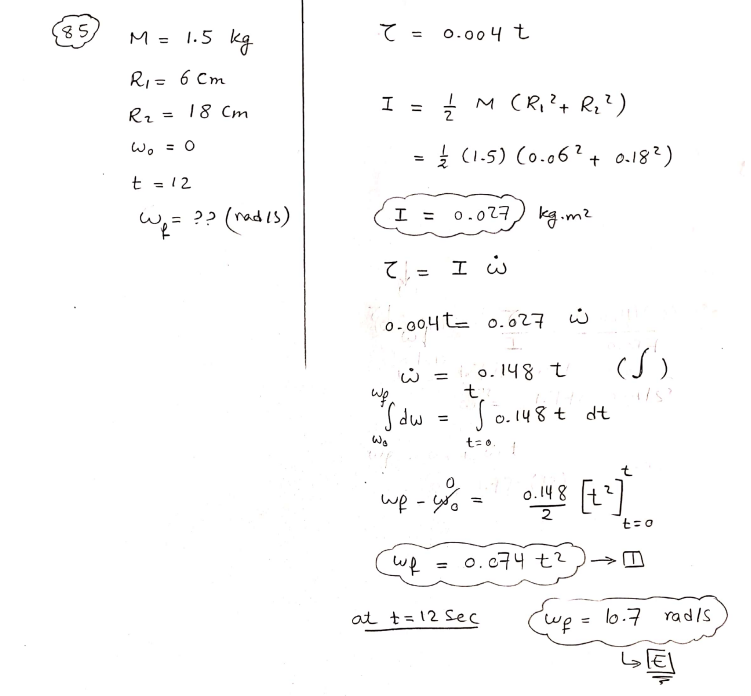 85
M = 1.5 kg
R₁ = 6 cm
R₂ = 18 cm
ω₀ = 0
t = 12
ω_f = ?? (rad/s)
τ = 0.004 t
I = ½ M (R₁² + R₂²)
= ½ (1.5) (0.06² + 0.18²)
I = 0.027 kg.m²
τ = I ω̇
0.004t = 0.027 ω̇
ω̇ = 0.148 t (∫)
∫_{ω₀}^{ω_f} dω = ∫_{t=0}^{t} 0.148 t dt
ω_f - ω₀ 0 = 0.148/2 [t²]_{t=0}^{t}
ω_f = 0.074 t² → I
at t = 12 sec ω_f = 10.7 rad/s
↳ E